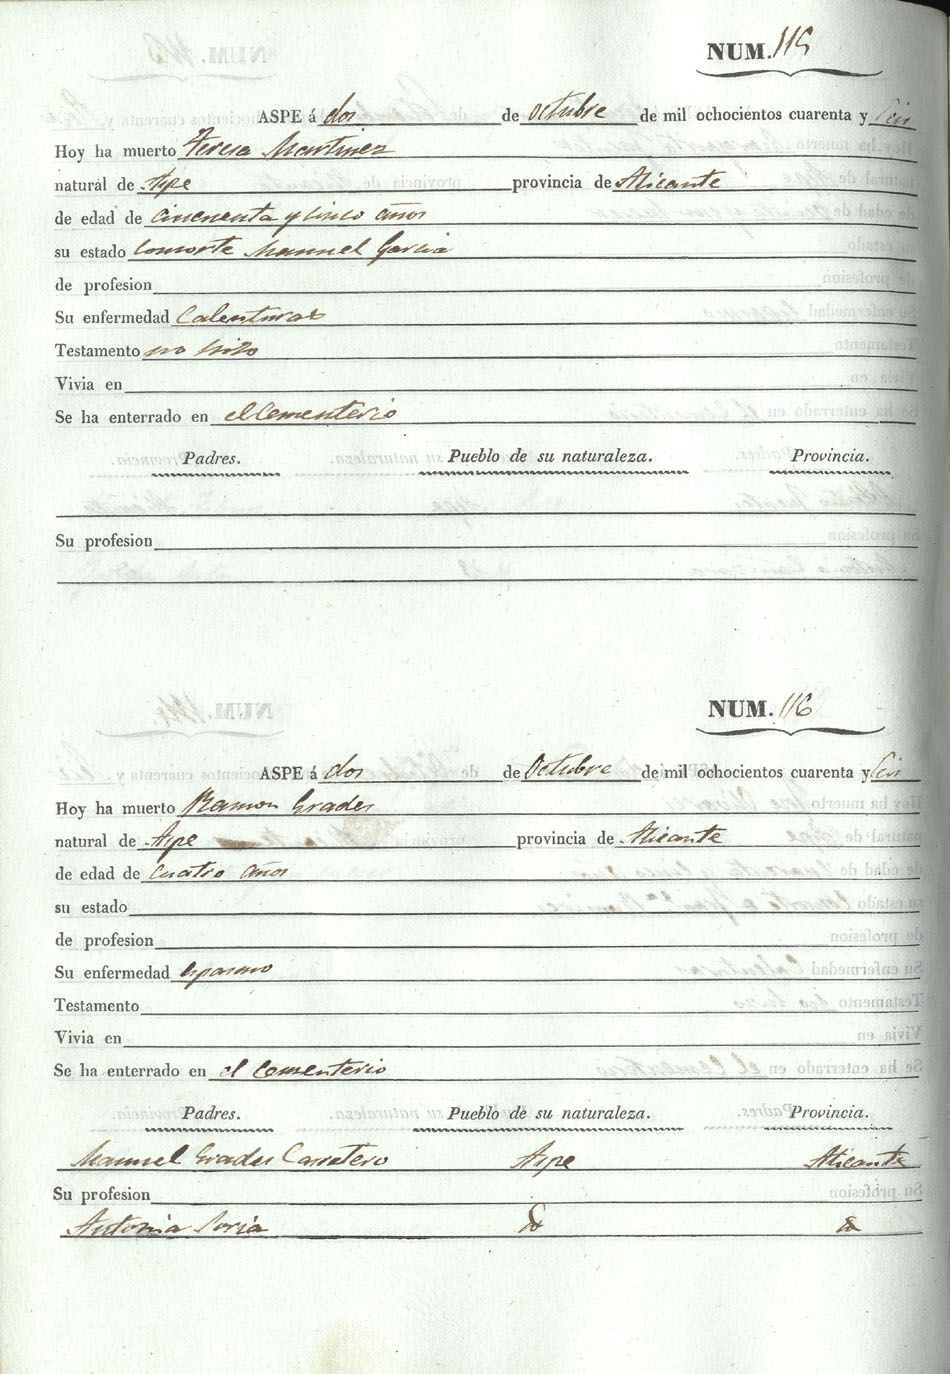 NUM. 115
ASPE á dos de Octubre de mil ochocientos cuarenta y seis
Hoy ha muerto Teresa Martinez
natural de Aspe provincia de Alicante
de edad de cincuenta y cinco años
su estado consorte Manuel Garcia
de profesion
Su enfermedad Calenturas
Testamento no hizo
Vivia en
Se ha enterrado en el Cementerio
Padres. Pueblo de su naturaleza. Provincia.
Su profesion
NUM. 116
ASPE á dos de Octubre de mil ochocientos cuarenta y seis
Hoy ha muerto Ramon Grades
natural de Aspe provincia de Alicante
de edad de cuatro años
su estado
de profesion
Su enfermedad espasmo
Testamento
Vivia en
Se ha enterrado en el Cementerio
Padres. Pueblo de su naturaleza. Provincia.
Manuel Grades Carretero Aspe Alicante
Su profesion
Antonia Soria do do